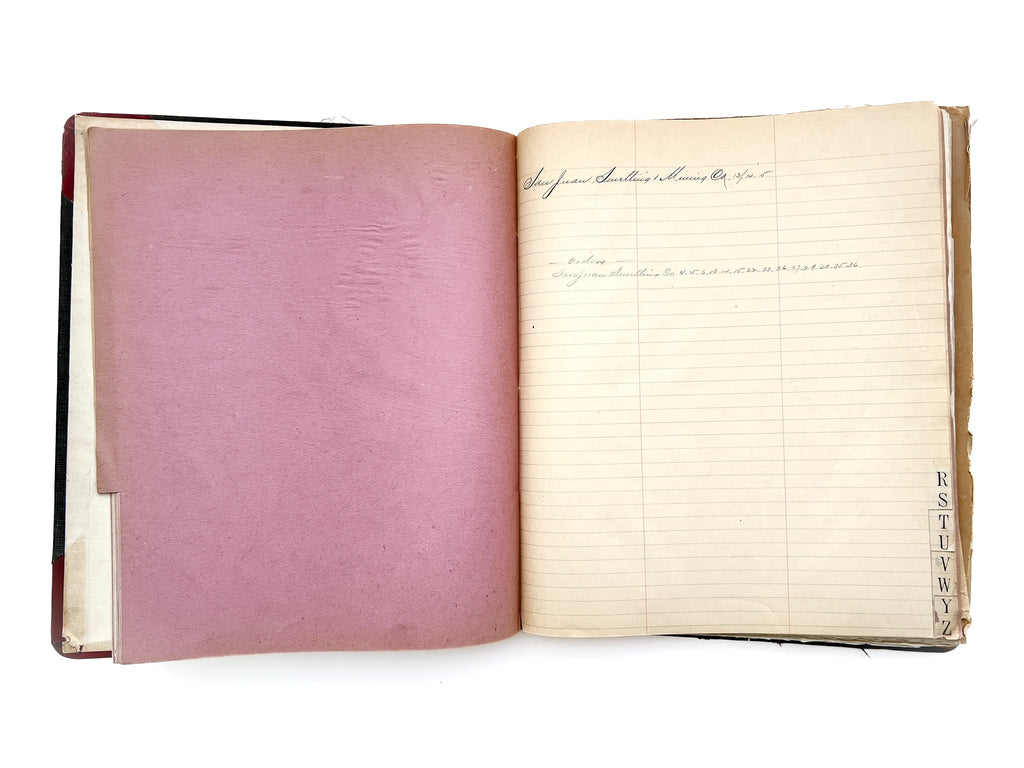 San Juan Smelting & Mining Co. 13/14.5
— Orders —
San Juan Smelting Co 4.5.6.13.14.15.22.23.26.27.29.30.35.36.
R
S
T
U
V
W
Y
Z